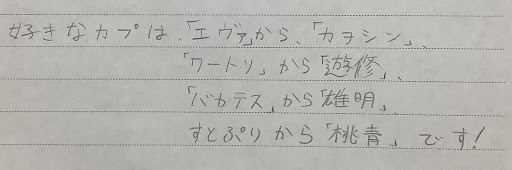 好きなカプは、「エヴァ」から、「カヲシン」、
「ワートリ」から「遊修」、
「バカテス」から「雄明」、
すとぷりから「桃青」です!